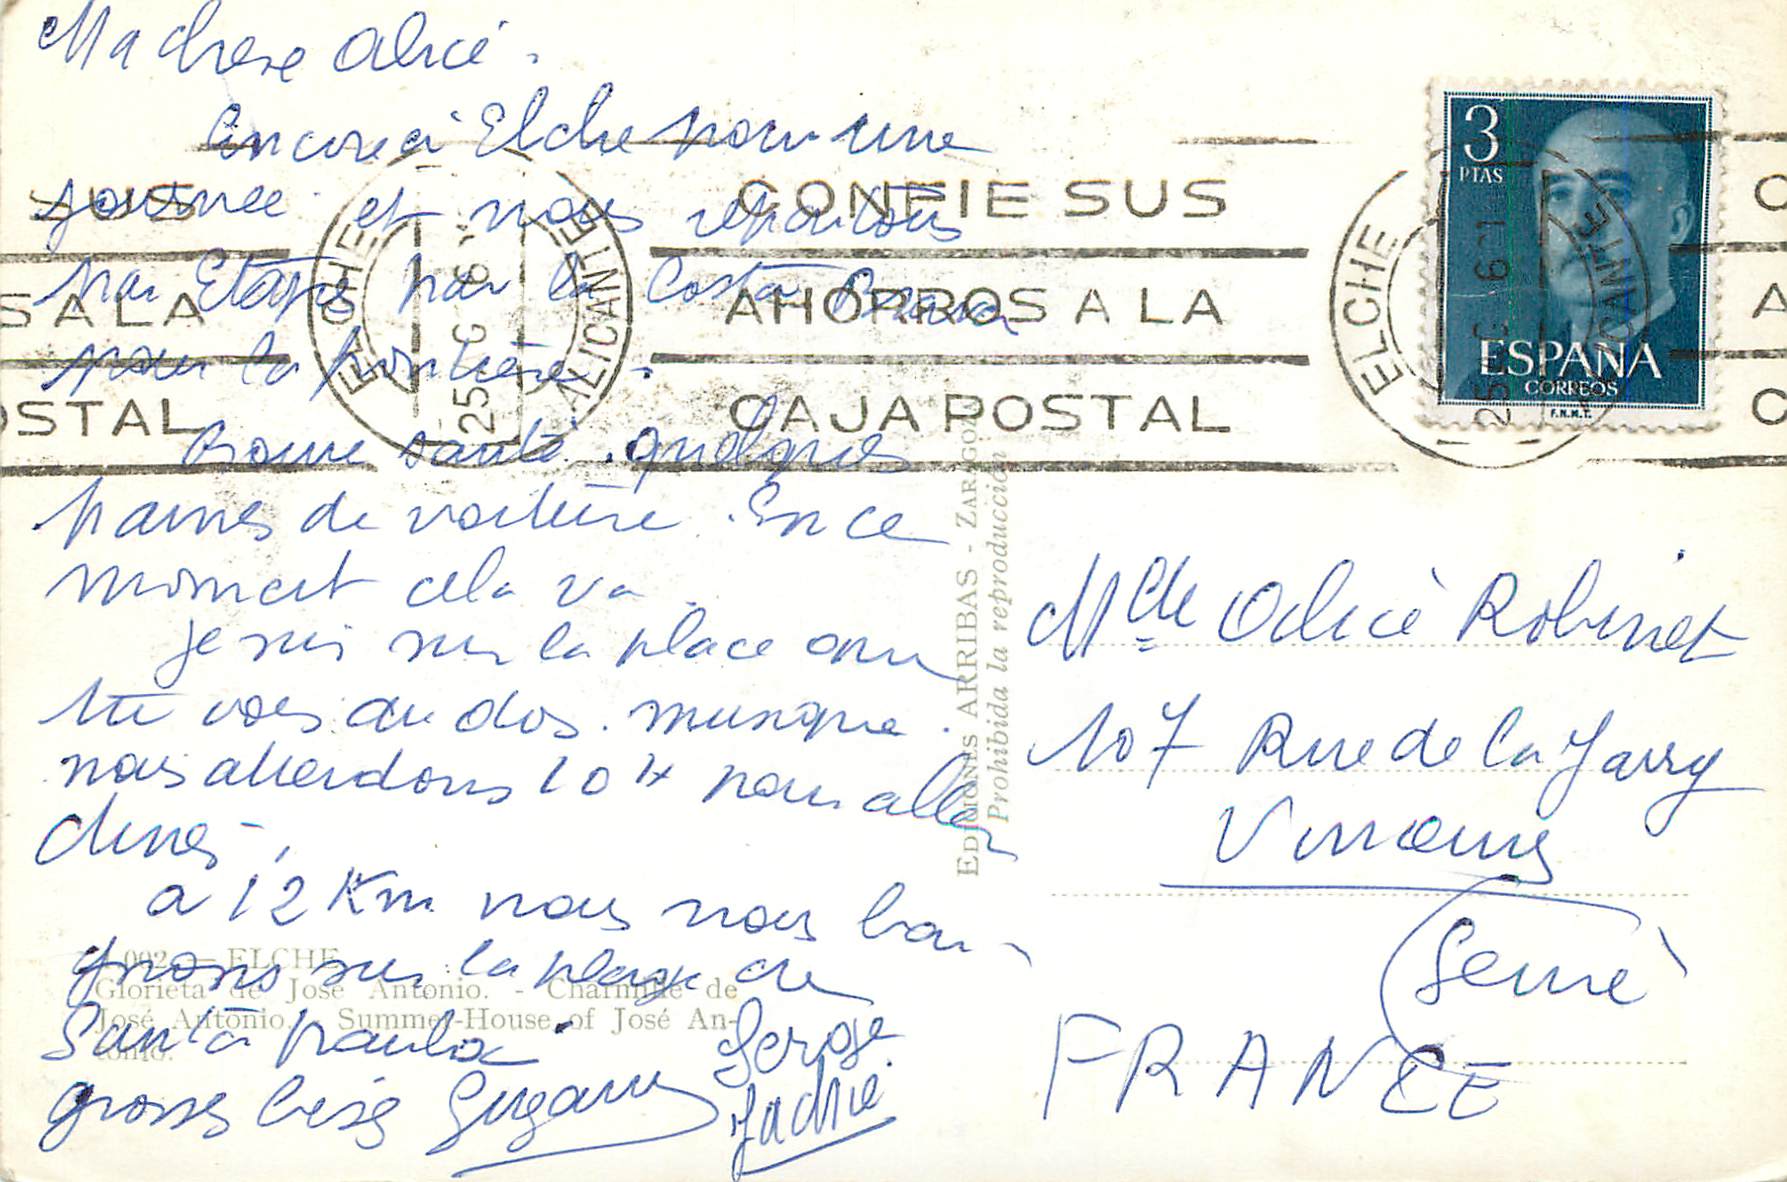 Ma chere Alice.
Encore à Elche pour une
journée et nous repartons
par Etapes par la Costa Brava
pour la frontière.
Bonne santé. quelques
pannes de voiture. En ce
moment cela va.
Je suis sur la place ou
tu vois au dos. musique.
nous attendons 10 H pour aller
diner,
a 12 Km nous nous bai-
gnons sur la plage de
Santa Paula
grosses bises Suzanne
Serge
Jackie
3
PTAS
ESPAÑA
CORREOS
F.N.M.T.
ELCHE
ALICANTE
CONFIE SUS
AHORROS A LA
CAJA POSTAL
ELCHE
ALICANTE
SUS
S A LA
OSTAL
EDICIONES ARRIBAS - ZARAGOZA
Prohibida la reproducción
Melle Alice Robinet
107 Rue de la Jarry
Vincennes
(Seine)
FRANCE
ELCHE
Glorieta de José Antonio. - Charmille de
José Antonio. - Summer-House of José An-
tonio.